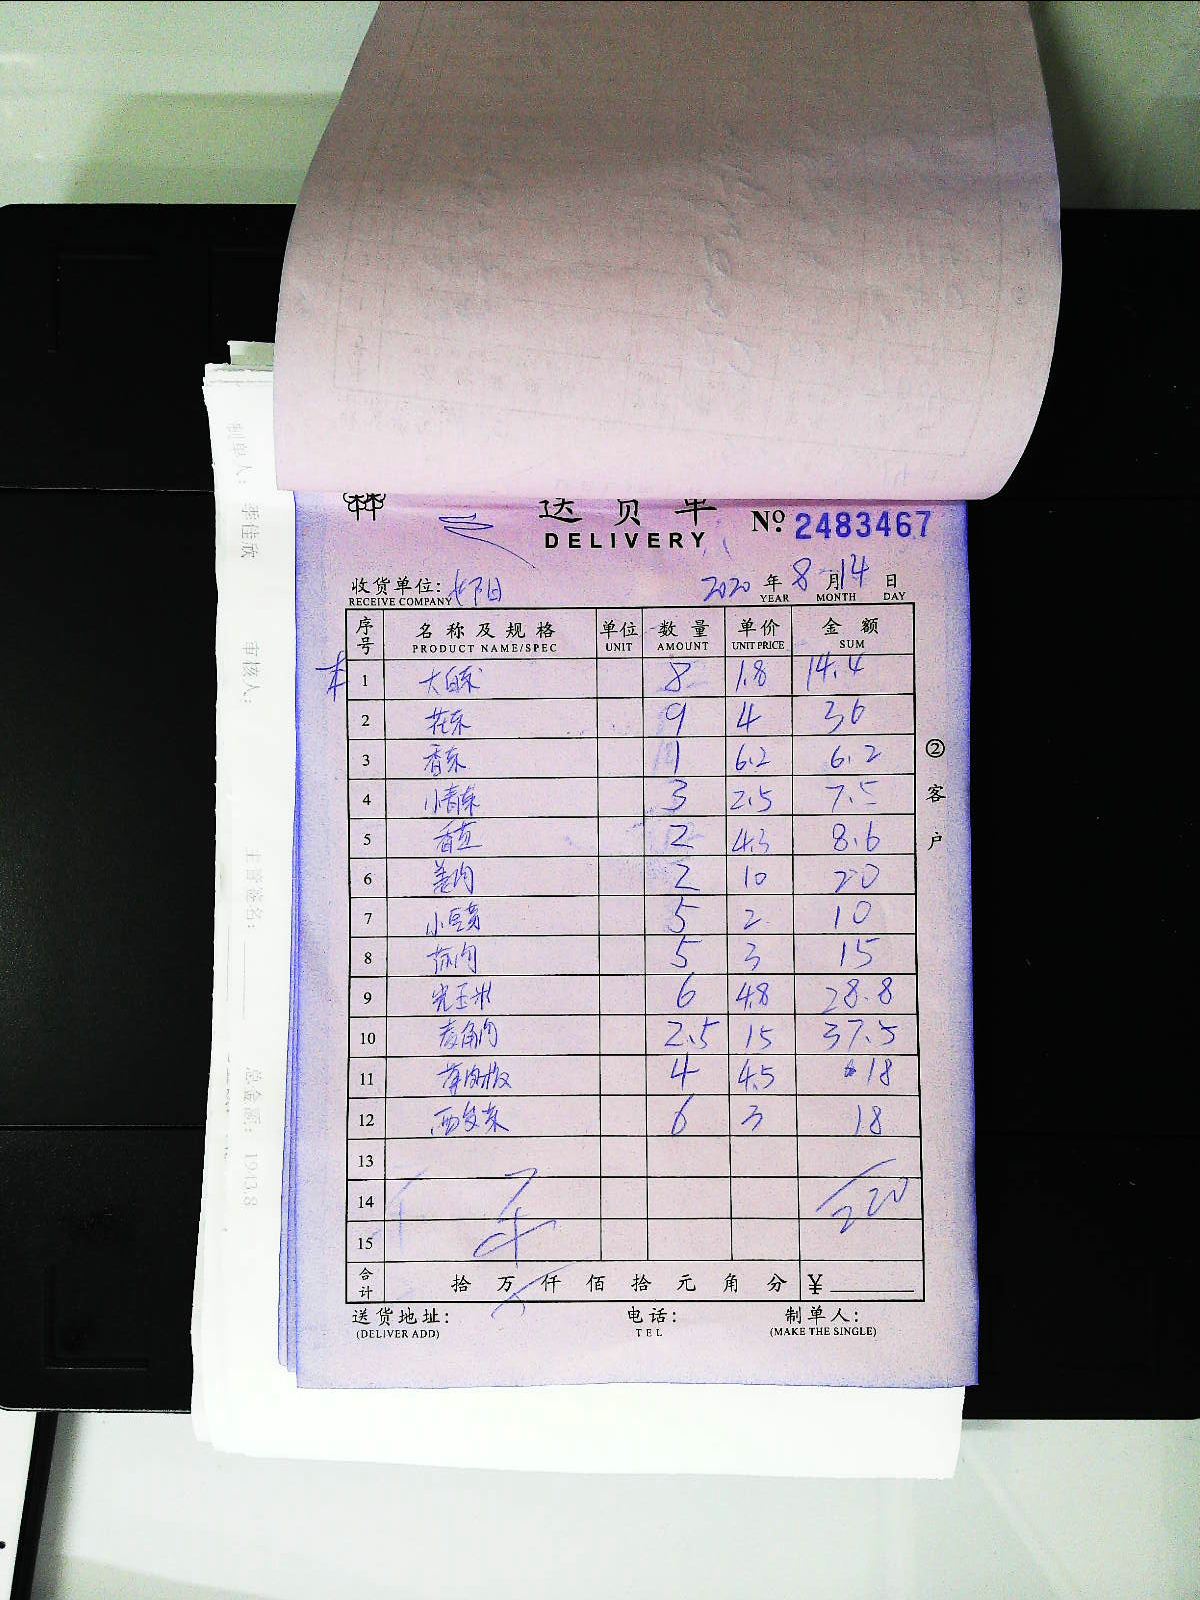 送货单
No. 2483467
DELIVERY
收货单位:
RECEIVE COMPANY
2020 年 8 月 14 日
YEAR MONTH DAY
序号 名称及规格 单位 数量 单价 金额
PRODUCT NAME/SPEC UNIT AMOUNT UNIT PRICE SUM
1 大白菜 8 1.8 14.4
2 花菜 9 4 36
3 香菜 1 6.2 6.2
4 小青菜 3 2.5 7.5
5 香芷 2 4.3 8.6
6 姜肉 2 10 20
7 小豆芽 5 2 10
8 5 3 15
9 光玉米 6 4.8 28.8
10 菱角肉 2.5 15 37.5
11 4 4.5 18
12 6 3 18
13
14 220
15
合计 拾 万 仟 佰 拾 元 角 分 ¥
送货地址: 电话: 制单人:
(DELIVER ADD) TEL (MAKE THE SINGLE)
② 客户
制单人: 季佳欣 审核人: 主管签名: 总金额: 1943.8